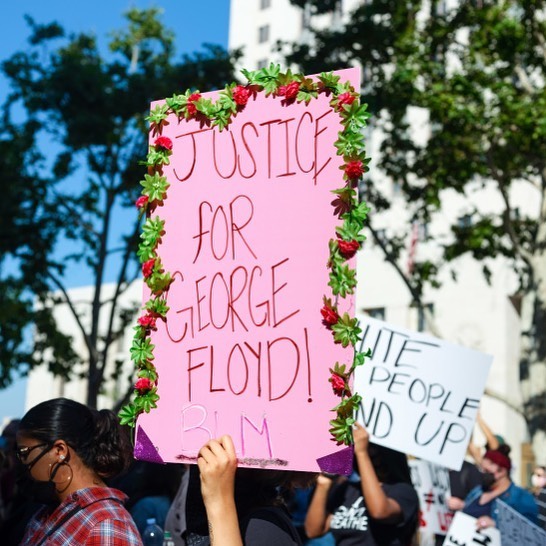 JUSTICE
FOR
GEORGE
FLOYD!
BLM
ITE
PEOPLE
ND UP
BREATHE